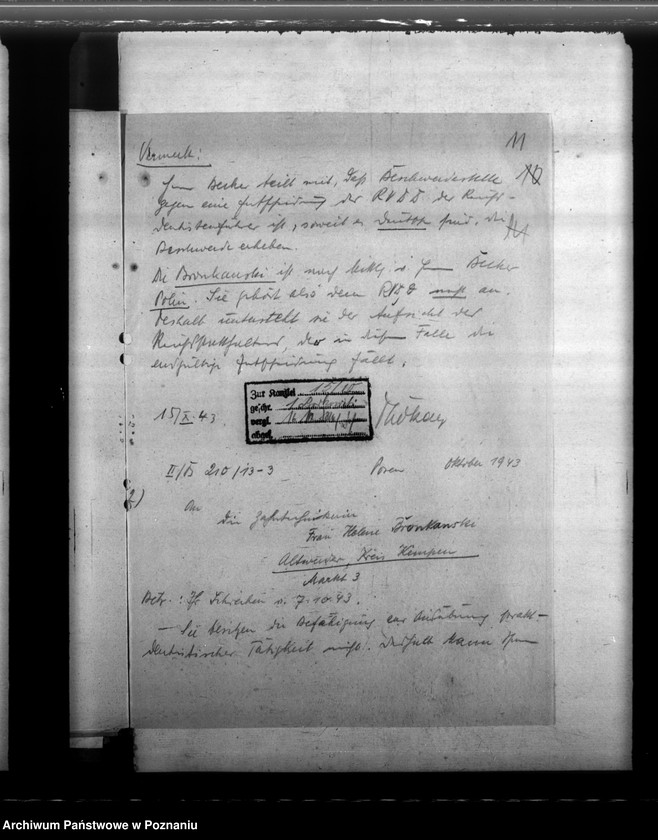 11
Vermerk:
Herr Becker teilt mit, daß Beschwerdestelle
gegen eine Entscheidung der RVDD der Reichs-
dentistenführer ist, soweit es Deutsche sind, die
Beschwerde erheben.
Die Bronkanski ist nach Herrn Becker
Polin. Sie gehört also dem nicht an.
Deshalb untersteht sie der Aufsicht des
Reichsstatthalters, der in diesem Falle die
endgültige Entscheidung fällt.
15/X.43.
Zur Kanzlei 15/10
geschr.
vergl.
abges.
II/ 210/13-3 Posen Oktober 1943
An
die Zahntechnikerin
Frau Helene Bronkanski
Altweiler, Kreis Kempen
Markt 3
Betr.: Ihr Schreiben v. 7.10.43.
Sie besitzen die Befähigung zur Ausübung prakt.-
dentistischer Tätigkeit nicht. Deshalb kann Ihnen
Archiwum Państwowe w Poznaniu